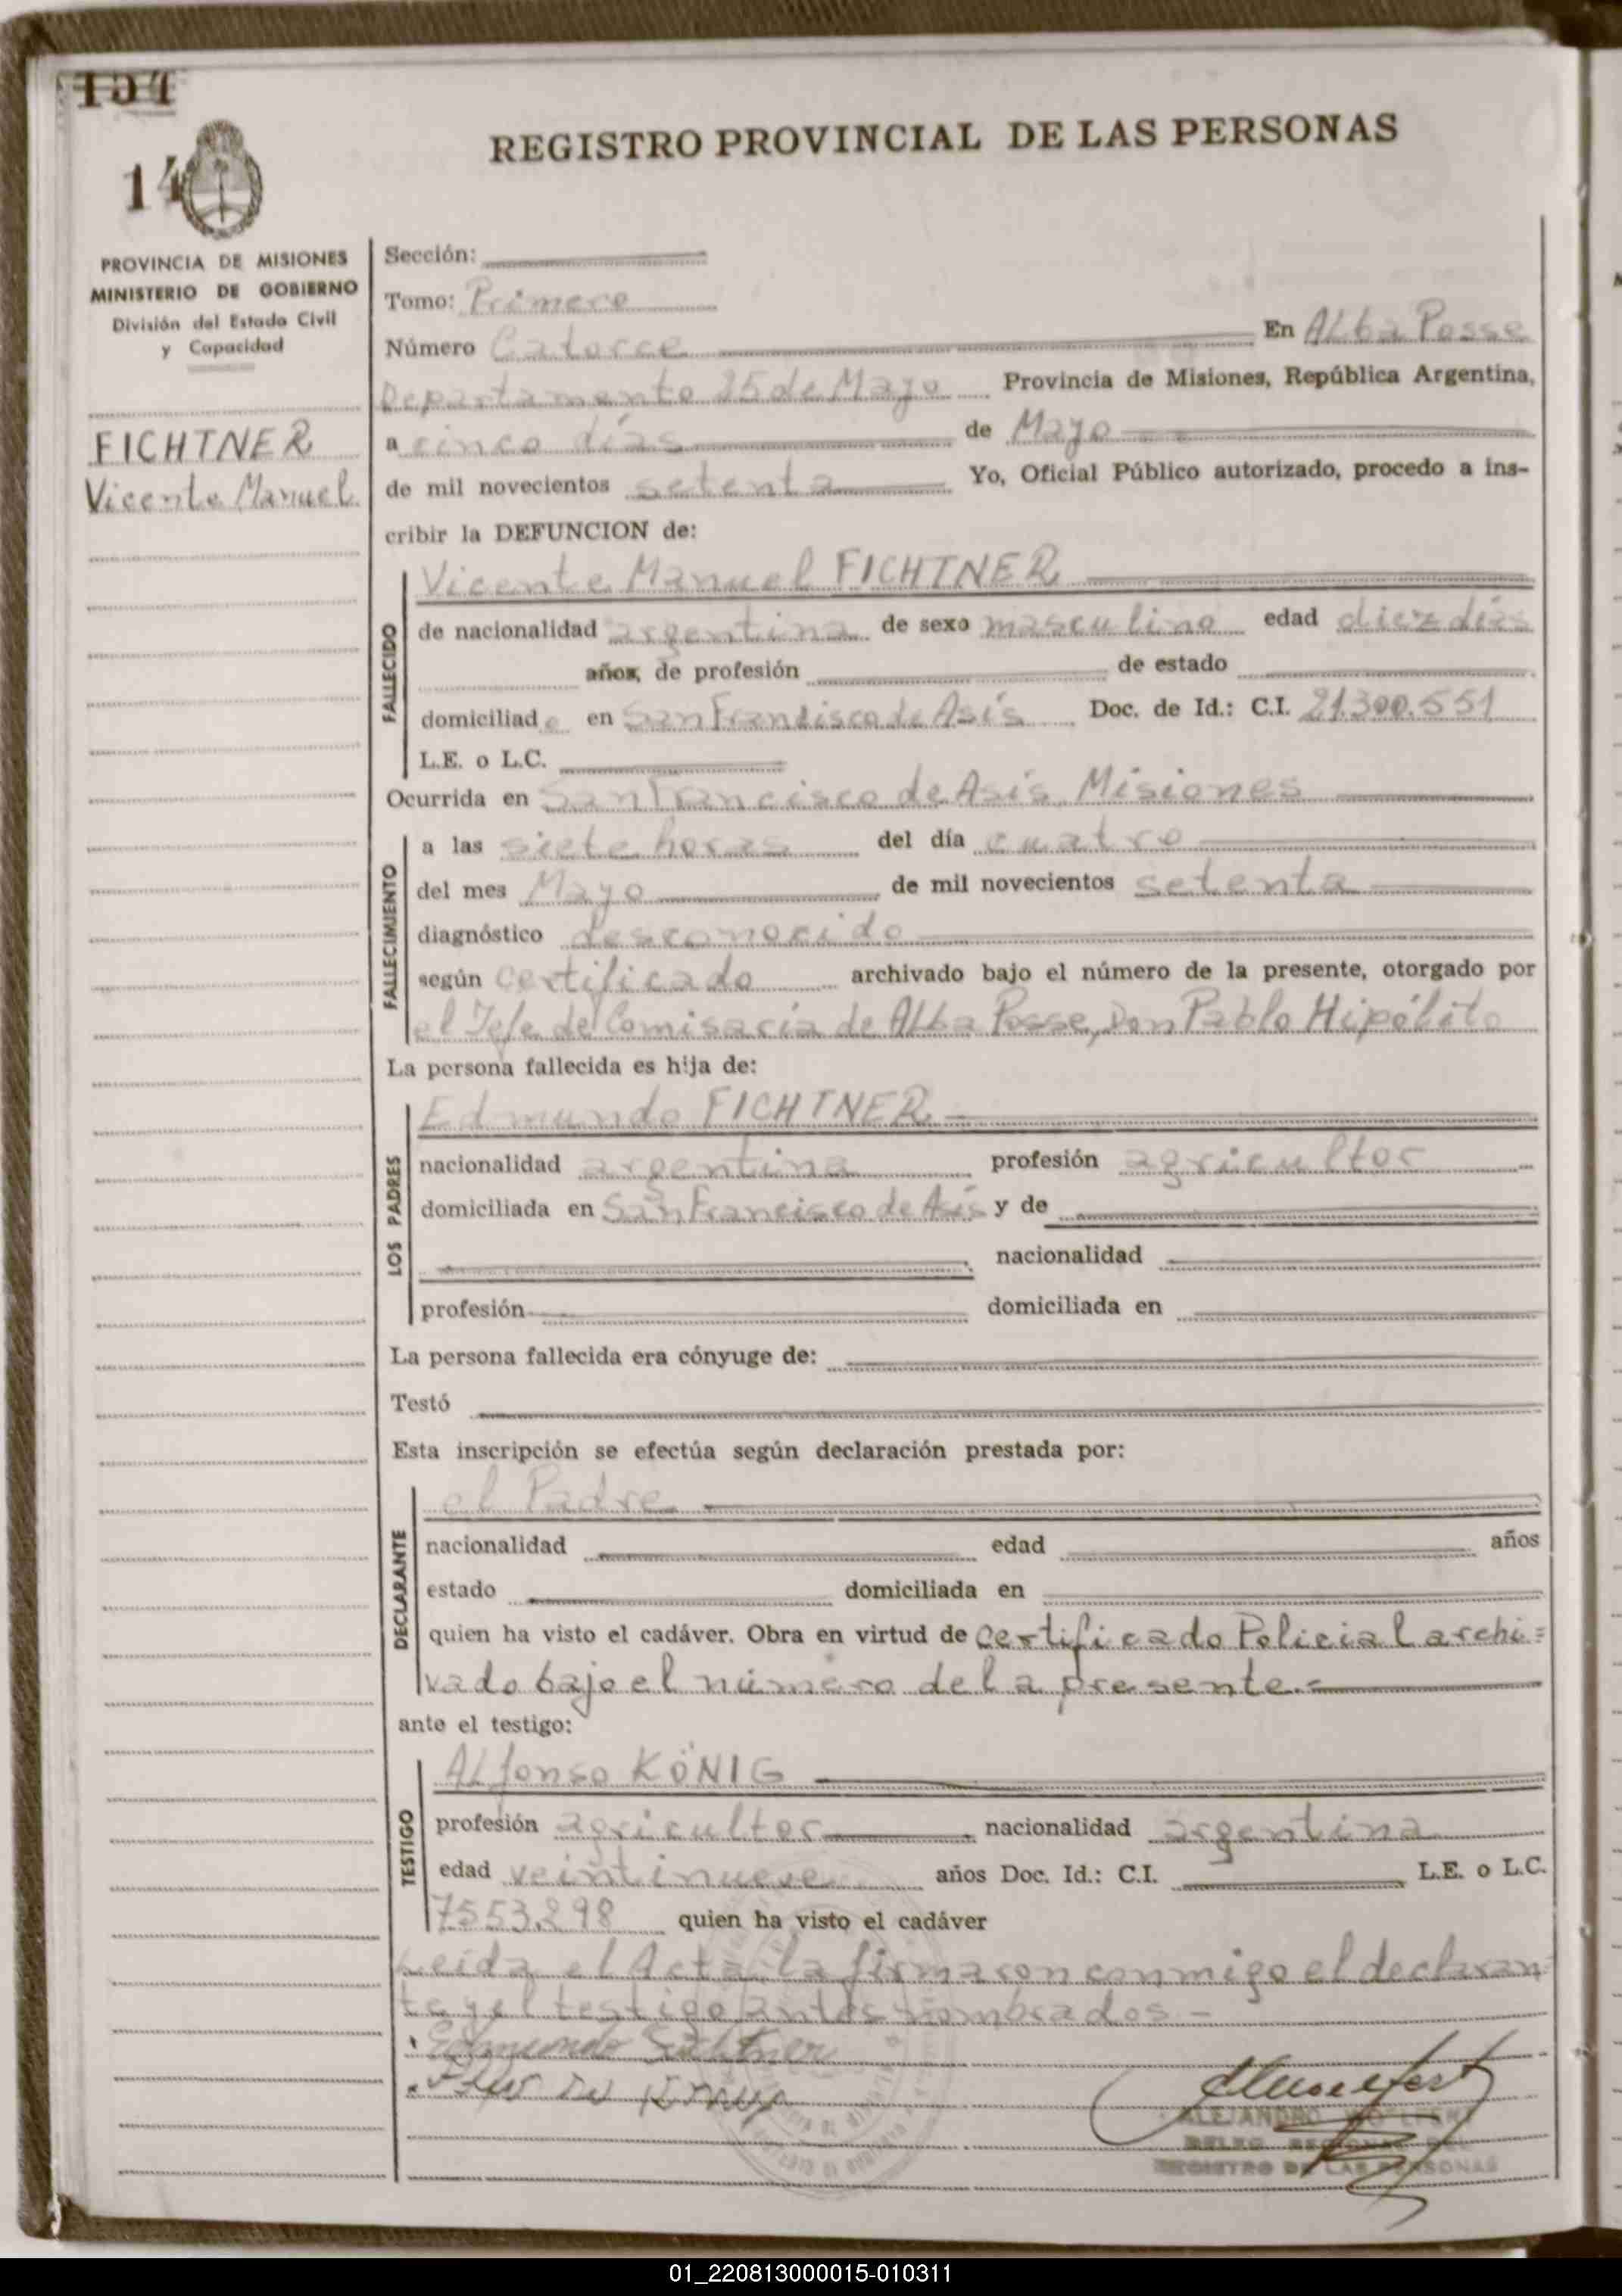 154
14
REGISTRO PROVINCIAL DE LAS PERSONAS
PROVINCIA DE MISIONES
MINISTERIO DE GOBIERNO
División del Estado Civil
y Capacidad
FICHTNER
Vicente Manuel
Sección:
Tomo: Primero
Número Catorce En Alba Posse
Departamento 25 de Mayo Provincia de Misiones, República Argentina,
a cinco días de Mayo
de mil novecientos setenta Yo, Oficial Público autorizado, procedo a ins-
cribir la DEFUNCION de:
FALLECIDO
Vicente Manuel FICHTNER
de nacionalidad argentina de sexo masculino edad diez días
años, de profesión de estado
domiciliado en San Francisco de Asís Doc. de Id.: C.I. 21.300.551
L.E. o L.C.
Ocurrida en San Francisco de Asís, Misiones
FALLECIMIENTO
a las siete horas del día cuatro
del mes Mayo de mil novecientos setenta
diagnóstico desconocido
según certificado archivado bajo el número de la presente, otorgado por
el Jefe de Comisaría de Alba Posse, Don Pablo Hipólito
La persona fallecida es hija de:
LOS PADRES
Edmundo FICHTNER
nacionalidad argentina profesión agricultor
domiciliada en San Francisco de Asís y de
nacionalidad
profesión domiciliada en
La persona fallecida era cónyuge de:
Testó
Esta inscripción se efectúa según declaración prestada por:
DECLARANTE
el Padre
nacionalidad edad años
estado domiciliada en
quien ha visto el cadáver. Obra en virtud de Certificado Policial archi=
vado bajo el número de la presente.=
ante el testigo:
TESTIGO
Alfonso KÖNIG
profesión agricultor nacionalidad argentina
edad veintinueve años Doc. Id.: C.I. L.E. o L.C.
7553.298 quien ha visto el cadáver
Leida el Acta, la firmaron conmigo el declaran
te y el testigo antes nombrados -
Edmundo Fichtner
ALEJANDRO
REGISTRO DE LAS PERSONAS
01_220813000015-010311